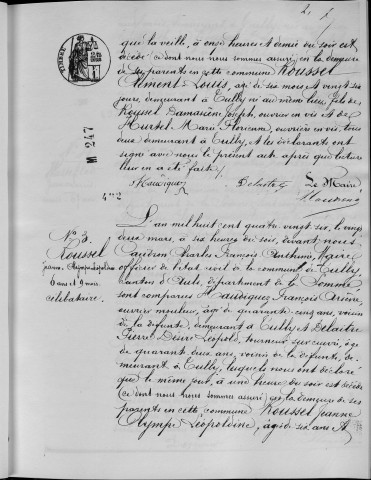 2. 2
TIMBRE
que la veille, à onze heures et demie du soir est
décédé (ce dont nous nous sommes assuré) en la demeure
de ses parents en cette commune Rousset
Clément Louis, agé de six mois et vingt six
jours, demeurant à Tully né au même lieu, fils de
Rousset Damascène Joseph, ouvrier en vis et de
Hurtel Marie Florienne, ouvrière en vis, tous
deux demeurant à Tully, et les déclarants ont
signé avec nous le présent acte après que lecture
leur en a été faite /.
Delaitre Le Maire
M 247
N° 3.
Rousset
Jeanne Olympe Léopoldine
6 ans et 9 mois
célibataire.
L'an mil huit cent quatre vingt six, le vingt
deux mai, à six heures du soir, devant nous
Charles François Maire
officier de l'état civil de la commune de Tully,
canton d'Ault, département de la Somme,
sont comparus Hautbiquez François
ouvrier mouleur, agé de quarante cinq ans, voisin
de la défunte, demeurant à Tully et Delaitre
Pierre Désiré Léopold, tourneur sur cuivre, agé
de quarante deux ans, voisin de la défunte, de-
meurant à Tully, lesquels nous ont déclaré
que le même jour, à une heure du soir est décédée
(ce dont nous nous sommes assuré) en la demeure de ses
parents en cette commune Rousset Jeanne
Olympe Léopoldine, agée de six ans et